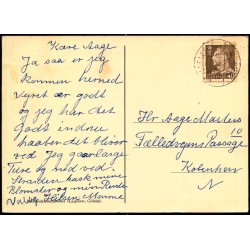 Kære Aage
Ja saa er jeg
kommen herned
Vejret er godt
og jeg har det
Godt endnu
haaber det bliver
ved Jeg gaar lange
Ture og ned vej
Stranden husk mine
Blomster og min Rude
Hilsen Mamma
Hr Aage
Fælledvejens Passage
10
København
N